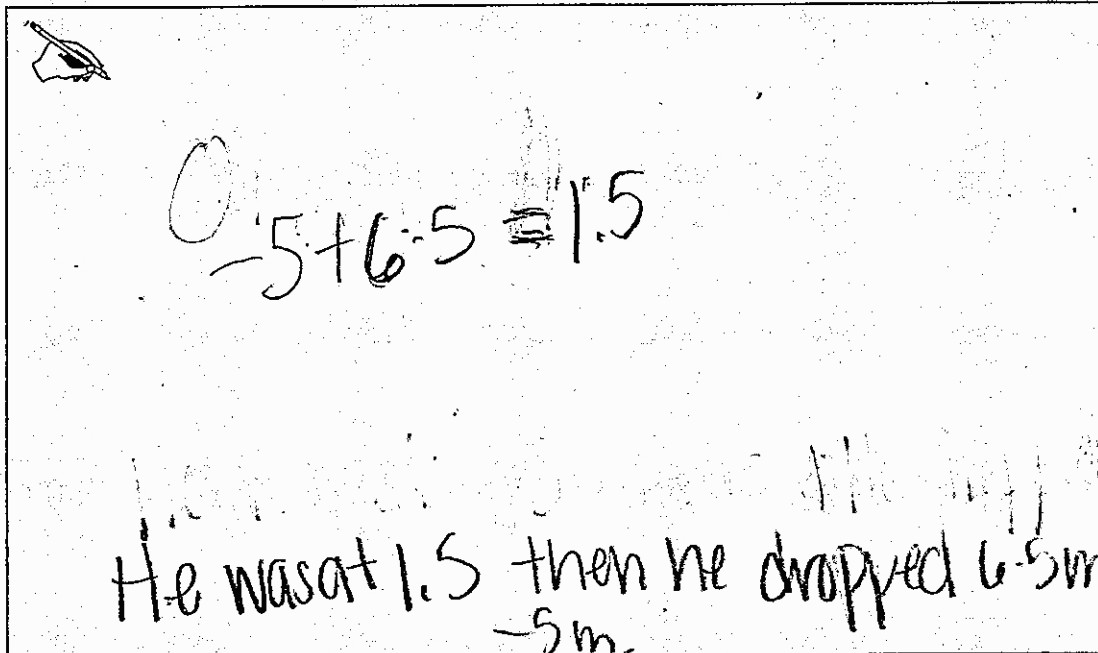 -5+6.5 = 1.5
He was at 1.5 then he dropped 6.5m
-5m.